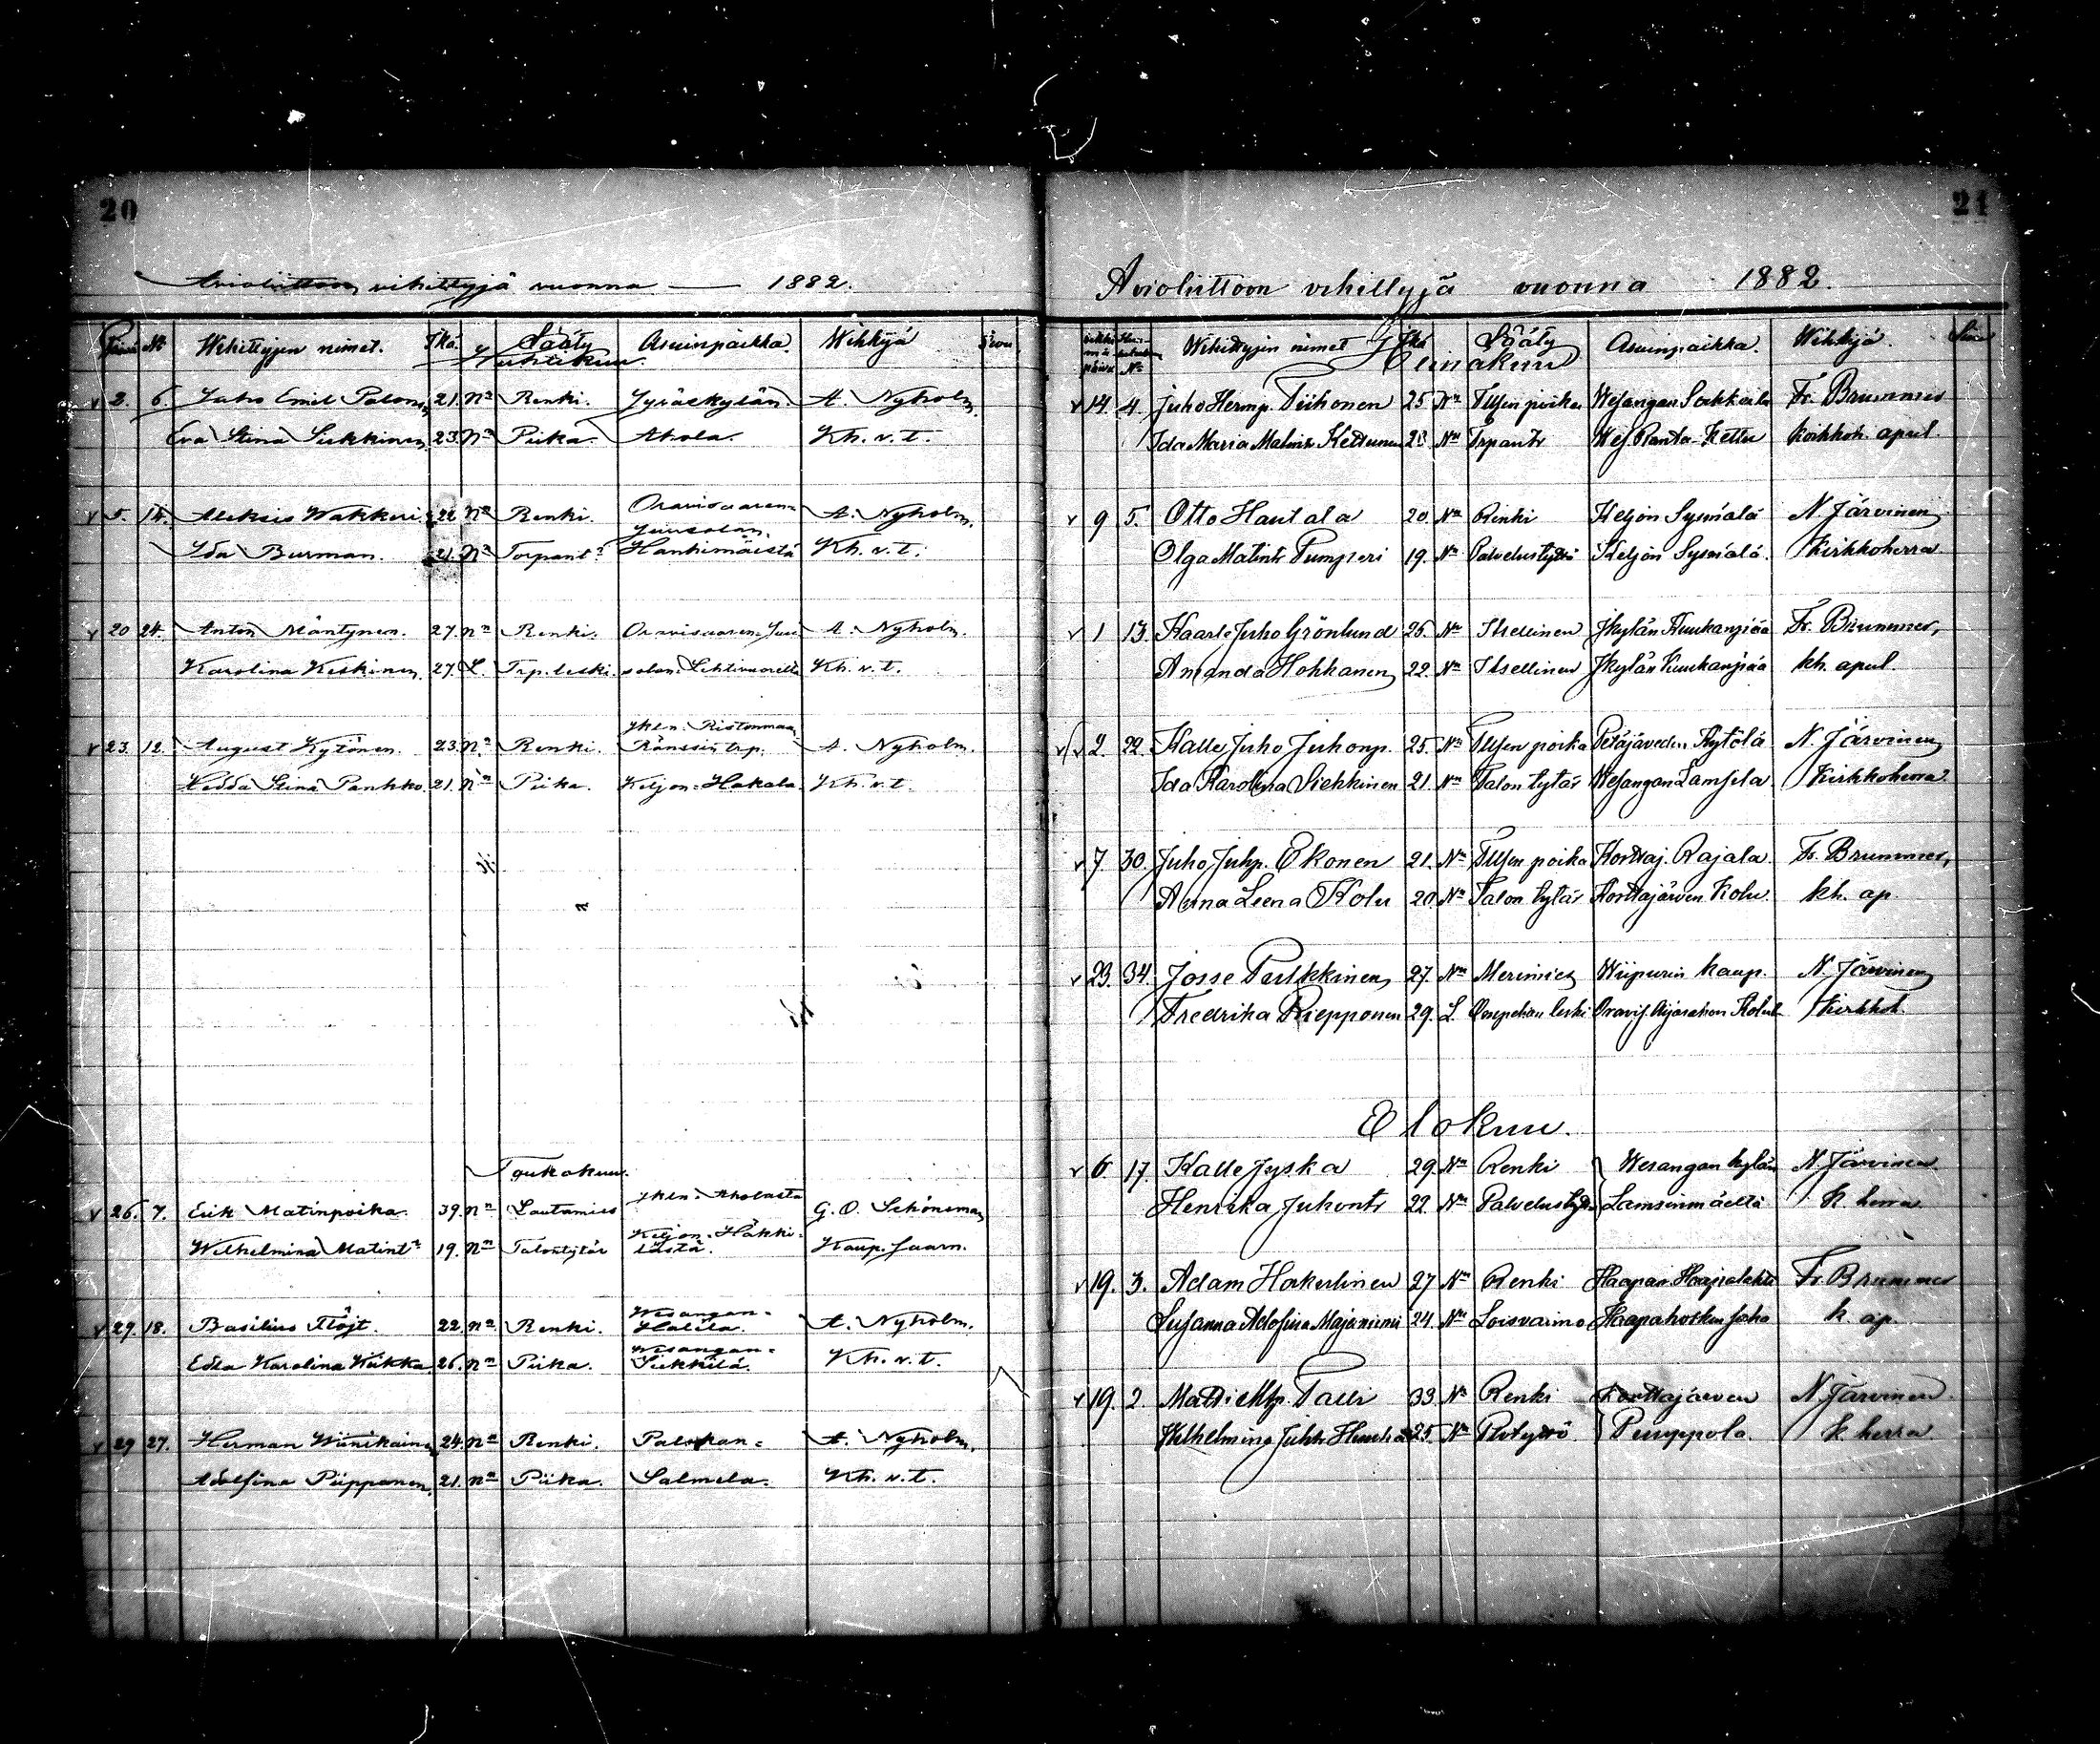 20
Avioliittoon vihittyjä vuonna — 1882.
Päivä № Wihittyjen nimet. Ikä. Sääty Asuinpaikka. Wihkijä Sivu
Huhtikuu.
v 2. 6. Juho Emil Palonen 21. Nn Renki. Jyväskylän. A. Nyholm.
Eva Stina Sikkinen 23. Nn Piika. Ahola. Kh. v. t.
v 5. 14. Aleksis Wakkuri 22 Nn Renki. Oravisaaren= Juusolan. A. Nyholm.
Ida Burman. 21. Nn Torpant. Hankimäistä Kh. v. t.
v 20 24. Anton Mäntynen. 27. Nn Renki. Oravisaaren Juu A. Nyholm.
Karolina Keskinen 27. L. Trp. leski. solan Lehtimarilta Kh. v. t.
v 23. 12. August Kytönen. 23. Nn Renki. Jklen. Ristonmaa Ränssin trp. A. Nyholm.
Hedda Stina Pankko. 21. Nn Piika. Keljon Hakala Kh. v. t.
Toukokuu.
v 26. 7. Erik Matinpoika. 39. Nn Lautamies Jklen. Aholasta G. O. Schöneman
Wilhelmina Matint. 19. Nn Talontytär Keljon Häkkilästä. Kaup. Saarn.
v 29. 18. Basilius Flöjt. 22. Nn Renki. Wesangan= Halila. A. Nyholm.
Edla Karolina Kukka. 26. Nn Piika. Wesangan= Sikkilä. Kh. v. t.
v 29 27. Herman Wiinikainen 24. Nn Renki. Palokan= A. Nyholm.
Adolfina Piipponen. 21. Nn Piika. Salmela. Kh. v. t.
21
Avioliittoon vihittyjä vuonna 1882.
Wihittyjen nimet Ikä Sääty Asuinpaikka. Wihkijä. Sivu
Heinäkuu
v 14. 4. Juho Hermp. Tiihonen 25 Nn Tllsen poika Wesangan Sakkala Fr. Brummer
Ida Maria Matintr Kettunen 23 Nn Trpantr Wes. Ranta-Kettu kirkkoh. apul.
v 9 5. Otto Hautala 20. Nn Renki Keljon Sysmälä N. Järvinen
Olga Matintr Pumperi 19. Nn Palvelustyttö Keljon Sysmälä. Kirkkoherra
v 1 13. Kaarle Juho Grönlund 26. Nn Itsellinen Jkylän Kuukanpää Fr. Brummer,
Amanda Hokkanen 22. Nn Itsellinen Jkylän Kuukanpää kh. apul.
v 2 22. Kalle Juho Juhonp. 25. Nn Tllsen poika Petäjäveden Kytölä N. Järvinen
Ida Karolina Siekkinen 21. Nn Talon tytär Wesangan Lamsila Kirkkoherra
v 7. 30. Juho Juhp. Ekonen 21. Nn Tllsen poika Korttaj. Rajala Fr. Brummer,
Anna Leena Kolu 20. Nn Talon tytär Korttajärven Kolu. kh. ap.
v 23. 34. Josse Parkkinen 27. Nn Merimies Wiipurin kaup. N. Järvinen
Fredrika Piepponen 29. L. leski Kirkkoh.
Elokuu.
v 6 17. Kalle Jyska 29. Nn Renki Wesangan kylän N. Järvinen.
Henrika Juhontr 22. Nn Palvelustyt. Lamsinmäeltä k. herra
v 19. 3. Adam Hakulinen 27 Nn Renki Haapan Haapalahti Fr. Brummer
Susanna Adolfina Majaniemi 24. Nn Loisvaimo Haapakosken saha k. ap
v 19. 2. Matti Mp. Talli 33 Nn Renki Korttajärven N. Järvinen
Wilhelmina Juhtr 25. Nn Plstyttö Pumppola. k. herra